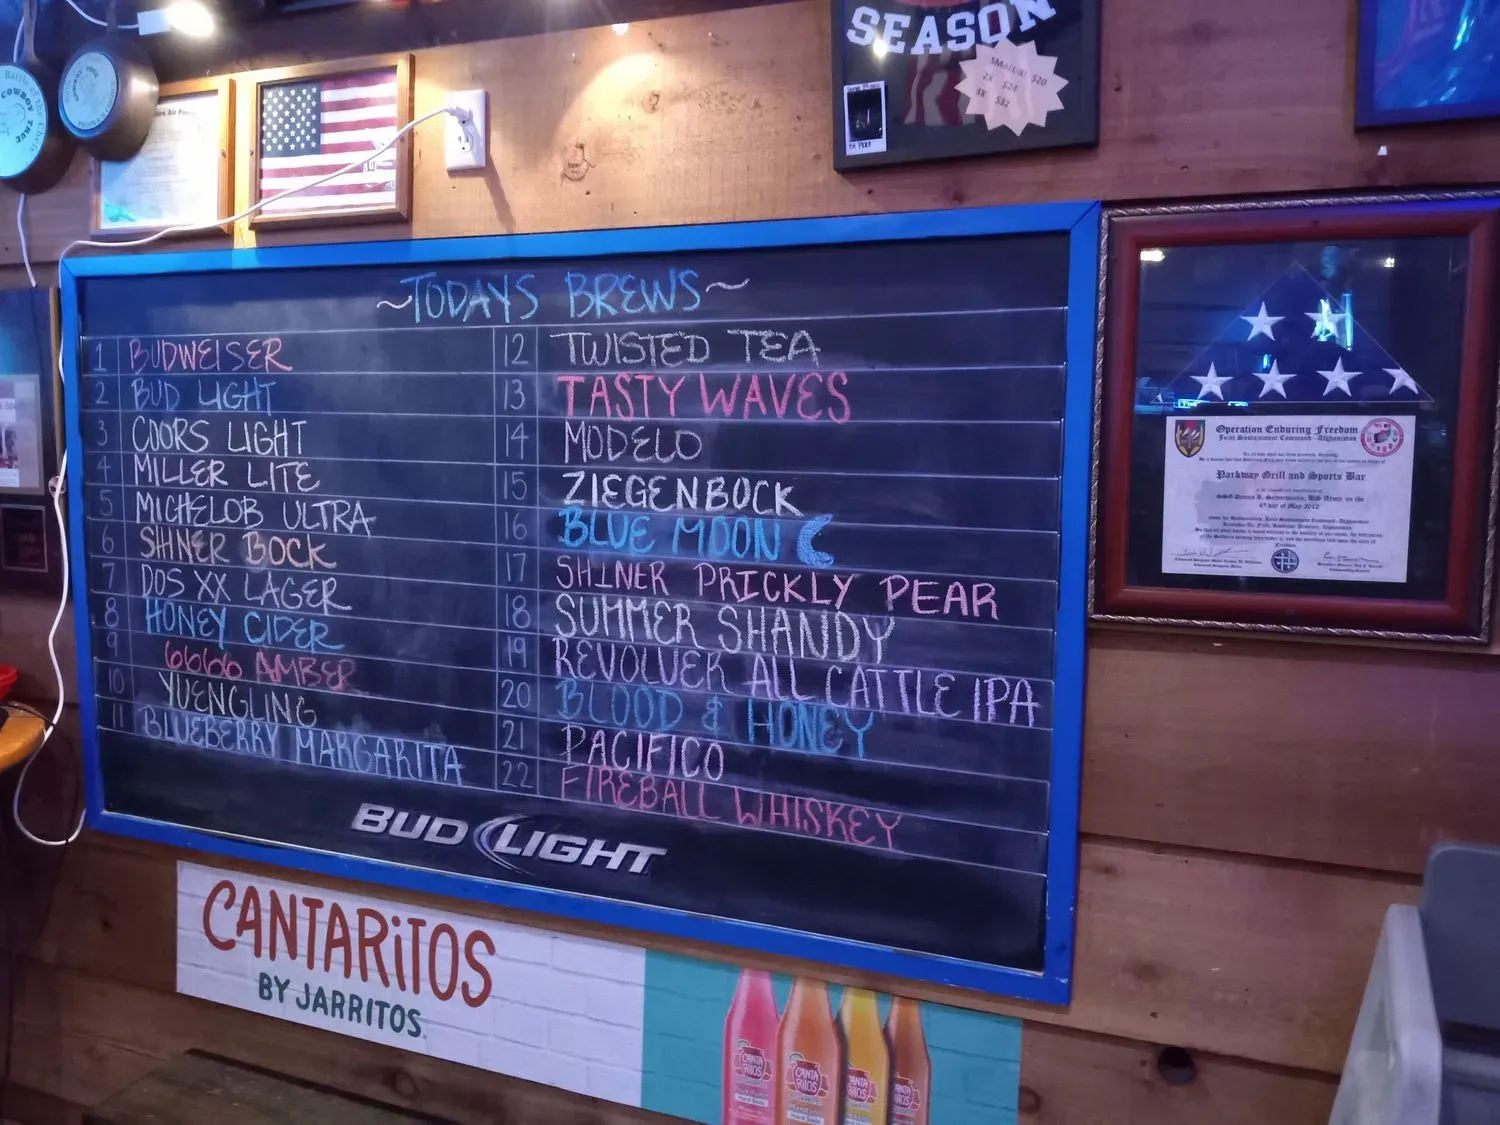 COWBOY TRUE
SEASON
SMALL-XL $20
2X $24
3X $32
~TODAYS BREWS~
1 BUDWEISER
2 BUD LIGHT
3 COORS LIGHT
4 MILLER LITE
5 MICHELOB ULTRA
6 SHINER BOCK
7 DOS XX LAGER
8 HONEY CIDER
9 6666 AMBER
10 YUENGLING
11 BLUEBERRY MARGARITA
12 TWISTED TEA
13 TASTY WAVES
14 MODELO
15 ZIEGENBOCK
16 BLUE MOON
17 SHINER PRICKLY PEAR
18 SUMMER SHANDY
19 REVOLVER ALL CATTLE IPA
20 BLOOD & HONEY
21 PACIFICO
22 FIREBALL WHISKEY
BUD LIGHT
Operation Enduring Freedom
Joint Sustainment Command-Afghanistan
Parkway Grill and Sports Bar
CANTARiTOS
BY JARRITOS
CANTA
RITOS
CANTA
RITOS
CANTA
RITOS
CANTA
RITOS